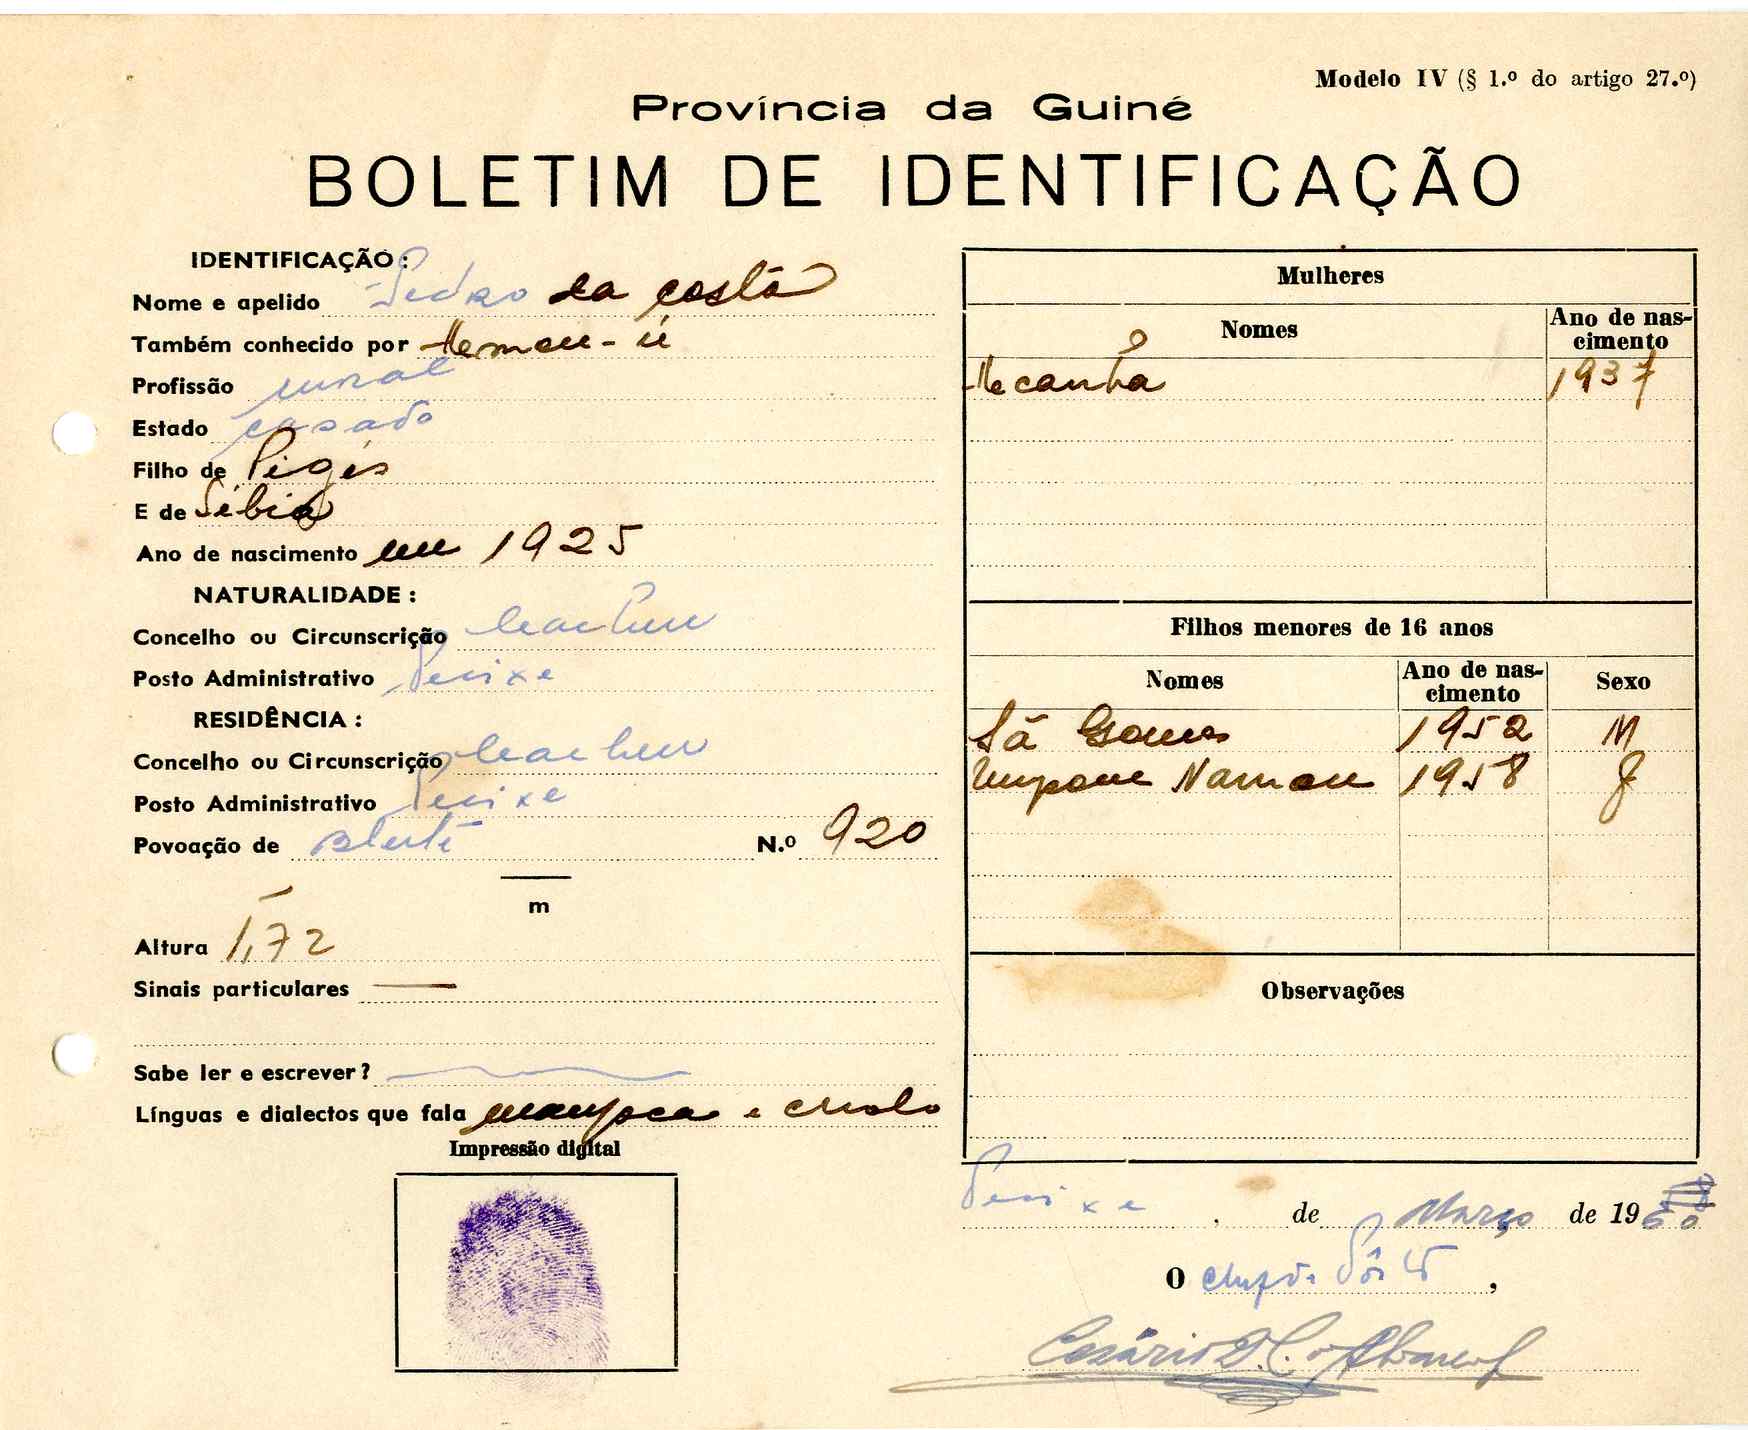 Modelo IV (§ 1.º do artigo 27.º)
Província da Guiné
BOLETIM DE IDENTIFICAÇÃO
IDENTIFICAÇÃO:
Nome e apelido Pedro da costa
Também conhecido por
Profissão rural
Estado casado
Filho de
E de Sibia
Ano de nascimento em 1925
NATURALIDADE :
Concelho ou Circunscrição Cacheu
Posto Administrativo Pecixe
RESIDÊNCIA :
Concelho ou Circunscrição Cacheu
Posto Administrativo Pecixe
Povoação de N.º 920
m
Altura 1,72
Sinais particulares —
Sabe ler e escrever?
Línguas e dialectos que fala manjaca e criolo
Impressão digital
Mulheres
Nomes Ano de nas-
cimento
1937
Filhos menores de 16 anos
Nomes Ano de nas-
cimento Sexo
Sá Gomes 1952 M
1958 F
Observações
Pecixe , de Março de 1960
O Chefe de Pôsto ,
Cesário